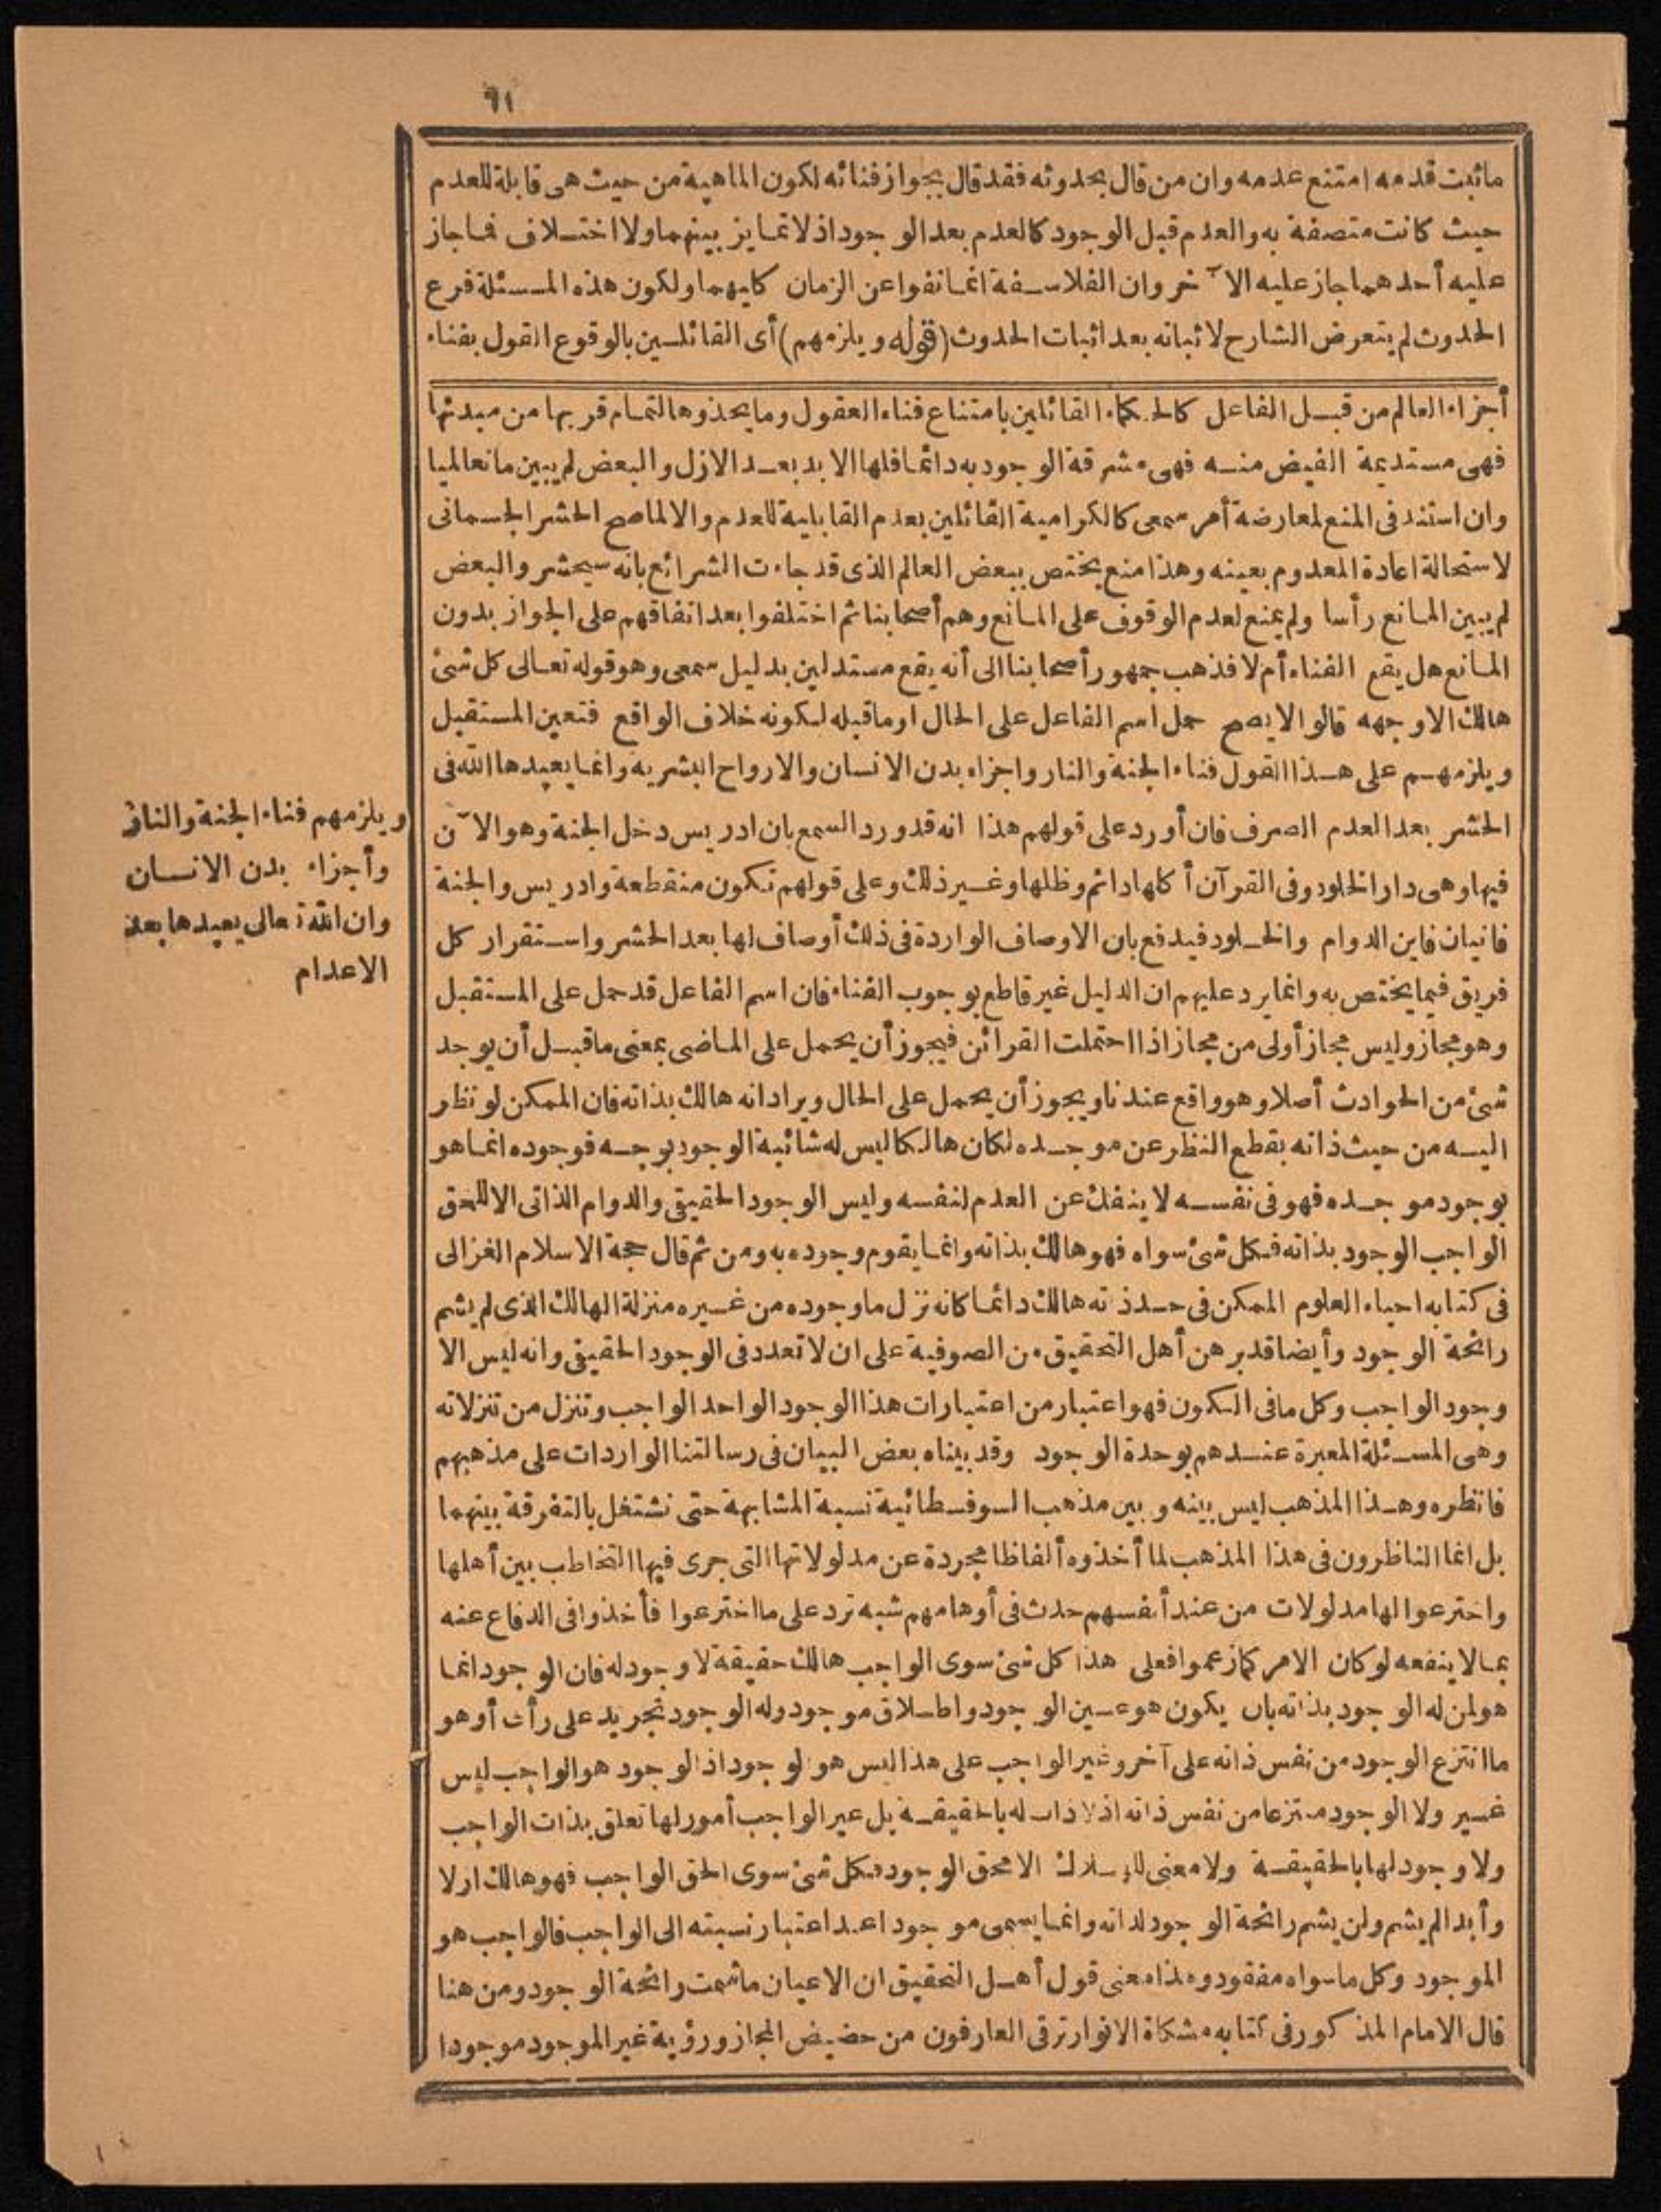 ٦١
ماثبت قدمه امتنع عدمه وان من قال بحدوثه فقد قال بجواز فنائه لكون الماهية من حيث هى قابلة للعدم
حيث كانت متصفة به والعدم قبل الوجود كالعدم بعد الوجود اذ لا تمايز بينهما ولا اختلاف فما جاز
عليه أحدهما جاز عليه الآخر وان الفلاسفة انما نفوا عن الزمان كليهما ولكون هذه المسئلة فرع
الحدوث لم يتعرض الشارح لاثباته بعد اثبات الحدوث (قوله ويلزمهم) أى القائلين بالوقوع القول بفناء
أجزاء العالم من قبل الفاعل كالحكماء القائلين بامتناع فناء العقول وما يحذوها لتمام قربها من مبدئها
فهى مستديمة الفيض منه فهى مشرقة الوجود به دائما فلها الابد بعد الازل والبعض لم يبين مانعا لميا
وان استند فى المنع لمعارضة أمر سمعى كالكرامية القائلين بعدم القابلية للعدم والا لما صح الحشر الجسمانى
لاستحالة اعادة المعدوم بعينه وهذا منع يختص ببعض العالم الذى قد جاءت الشرائع بانه سيحشر والبعض
لم يبين المانع رأسا ولم يمنع لعدم الوقوف على المانع وهم أصحابنا ثم اختلفوا بعد اتفاقهم على الجواز بدون
المانع هل يقع الفناء أم لا فذهب جمهور أصحابنا الى أنه يقع مستدلين بدليل سمعى وهو قوله تعالى كل شئ
هالك الا وجهه قالوا لا يصح حمل اسم الفاعل على الحال او ما قبله لكونه خلاف الواقع فتعين المستقبل
ويلزمهم على هذا القول فناء الجنة والنار واجزاء بدن الانسان والارواح البشريه وانما يعيدها الله فى
الحشر بعد العدم الصرف فان أورد على قولهم هذا انه قد ورد السمع بان ادريس دخل الجنة وهو الآن
فيها وهى دار الخلود وفى القرآن أكلها دائم وظلها وغير ذلك وعلى قولهم تكون منقطعة وادريس والجنة
فانيان فاين الدوام والخلود فيدفع بان الاوصاف الواردة فى ذلك أوصاف لها بعد الحشر واستقرار كل
فريق فيما يختص به وانما يرد عليهم ان الدليل غير قاطع بوجوب الفناء فان اسم الفاعل قد حمل على المستقبل
وهو مجاز وليس مجاز أولى من مجاز اذا احتملت القرائن فيجوز أن يحمل على الماضى بمعنى ما قبل أن يوجد
شئ من الحوادث أصلا وهو واقع عندنا ويجوز أن يحمل على الحال ويراد انه هالك بذاته فان الممكن لو نظر
اليه من حيث ذاته بقطع النظر عن موجده لكان هالكا ليس له شائبة الوجود بوجه فوجوده انما هو
بوجود موجده فهو فى نفسه لا ينفك عن العدم لنفسه وليس الوجود الحقيقى والدوام الذاتى الا للحق
الواجب الوجود بذاته فكل شئ سواه فهو هالك بذاته وانما يقوم وجوده به ومن ثم قال حجة الاسلام الغزالى
فى كتابه احياء العلوم الممكن فى حد ذاته هالك دائما كانه نزل ما وجوده من غيره منزلة الهالك الذى لم يشم
رائحة الوجود وأيضا قد برهن أهل التحقيق من الصوفية على ان لا تعدد فى الوجود الحقيقى وانه ليس الا
وجود الواجب وكل ما فى الكون فهو اعتبار من اعتبارات هذا الوجود الواحد الواجب وتنزل من تنزلاته
وهى المسئلة المعبرة عندهم بوحدة الوجود وقد بيناه بعض البيان فى رسالتنا الواردات على مذهبهم
فانظره وهذا المذهب ليس بينه وبين مذهب السوفسطائية نسبة المشابهة حتى نشتغل بالتفرقة بينهما
بل انما الناظرون فى هذا المذهب لما أخذوه ألفاظا مجردة عن مدلولاتها التى جرى فيها التخاطب بين أهلها
واخترعوا لها مدلولات من عند أنفسهم حدث فى أوهامهم شبه ترد على ما اخترعوا فأخذوا فى الدفاع عنه
بما لا ينفعه لو كان الامر كما زعموا فعلى هذا كل شئ سوى الواجب هالك حقيقة لا وجود له فان الوجود انما
هو لمن له الوجود بذاته بان يكون هو عين الوجود واطلاق موجود وله الوجود تجريد على رأى أو هو
ما انتزع الوجود من نفس ذاته على آخر وغير الواجب على هذا ليس هو الوجود اذ الوجود هو الواجب ليس
غير ولا الوجود منتزعا من نفس ذاته اذ لا ذات له بالحقيقة بل غير الواجب أمور لها تعلق بذات الواجب
ولا وجود لها بالحقيقة ولا معنى للهلاك الا محق الوجود فكل شئ سوى الحق الواجب فهو هالك ازلا
وأبدا لم يشم ولن يشم رائحة الوجود لذاته وانما يسمى موجودا عند اعتبار نسبته الى الواجب فالواجب هو
الموجود وكل ما سواه مفقود وهذا معنى قول أهل التحقيق ان الاعيان ما شمت رائحة الوجود ومن هنا
قال الامام المذكور فى كتابه مشكاة الانوار ترقى العارفون من حضيض المجاز ورؤية غير الموجود موجودا
ويلزمهم فناء الجنة والنار
وأجزاء بدن الانسان
وان الله تعالى يعيدها بعد
الاعدام